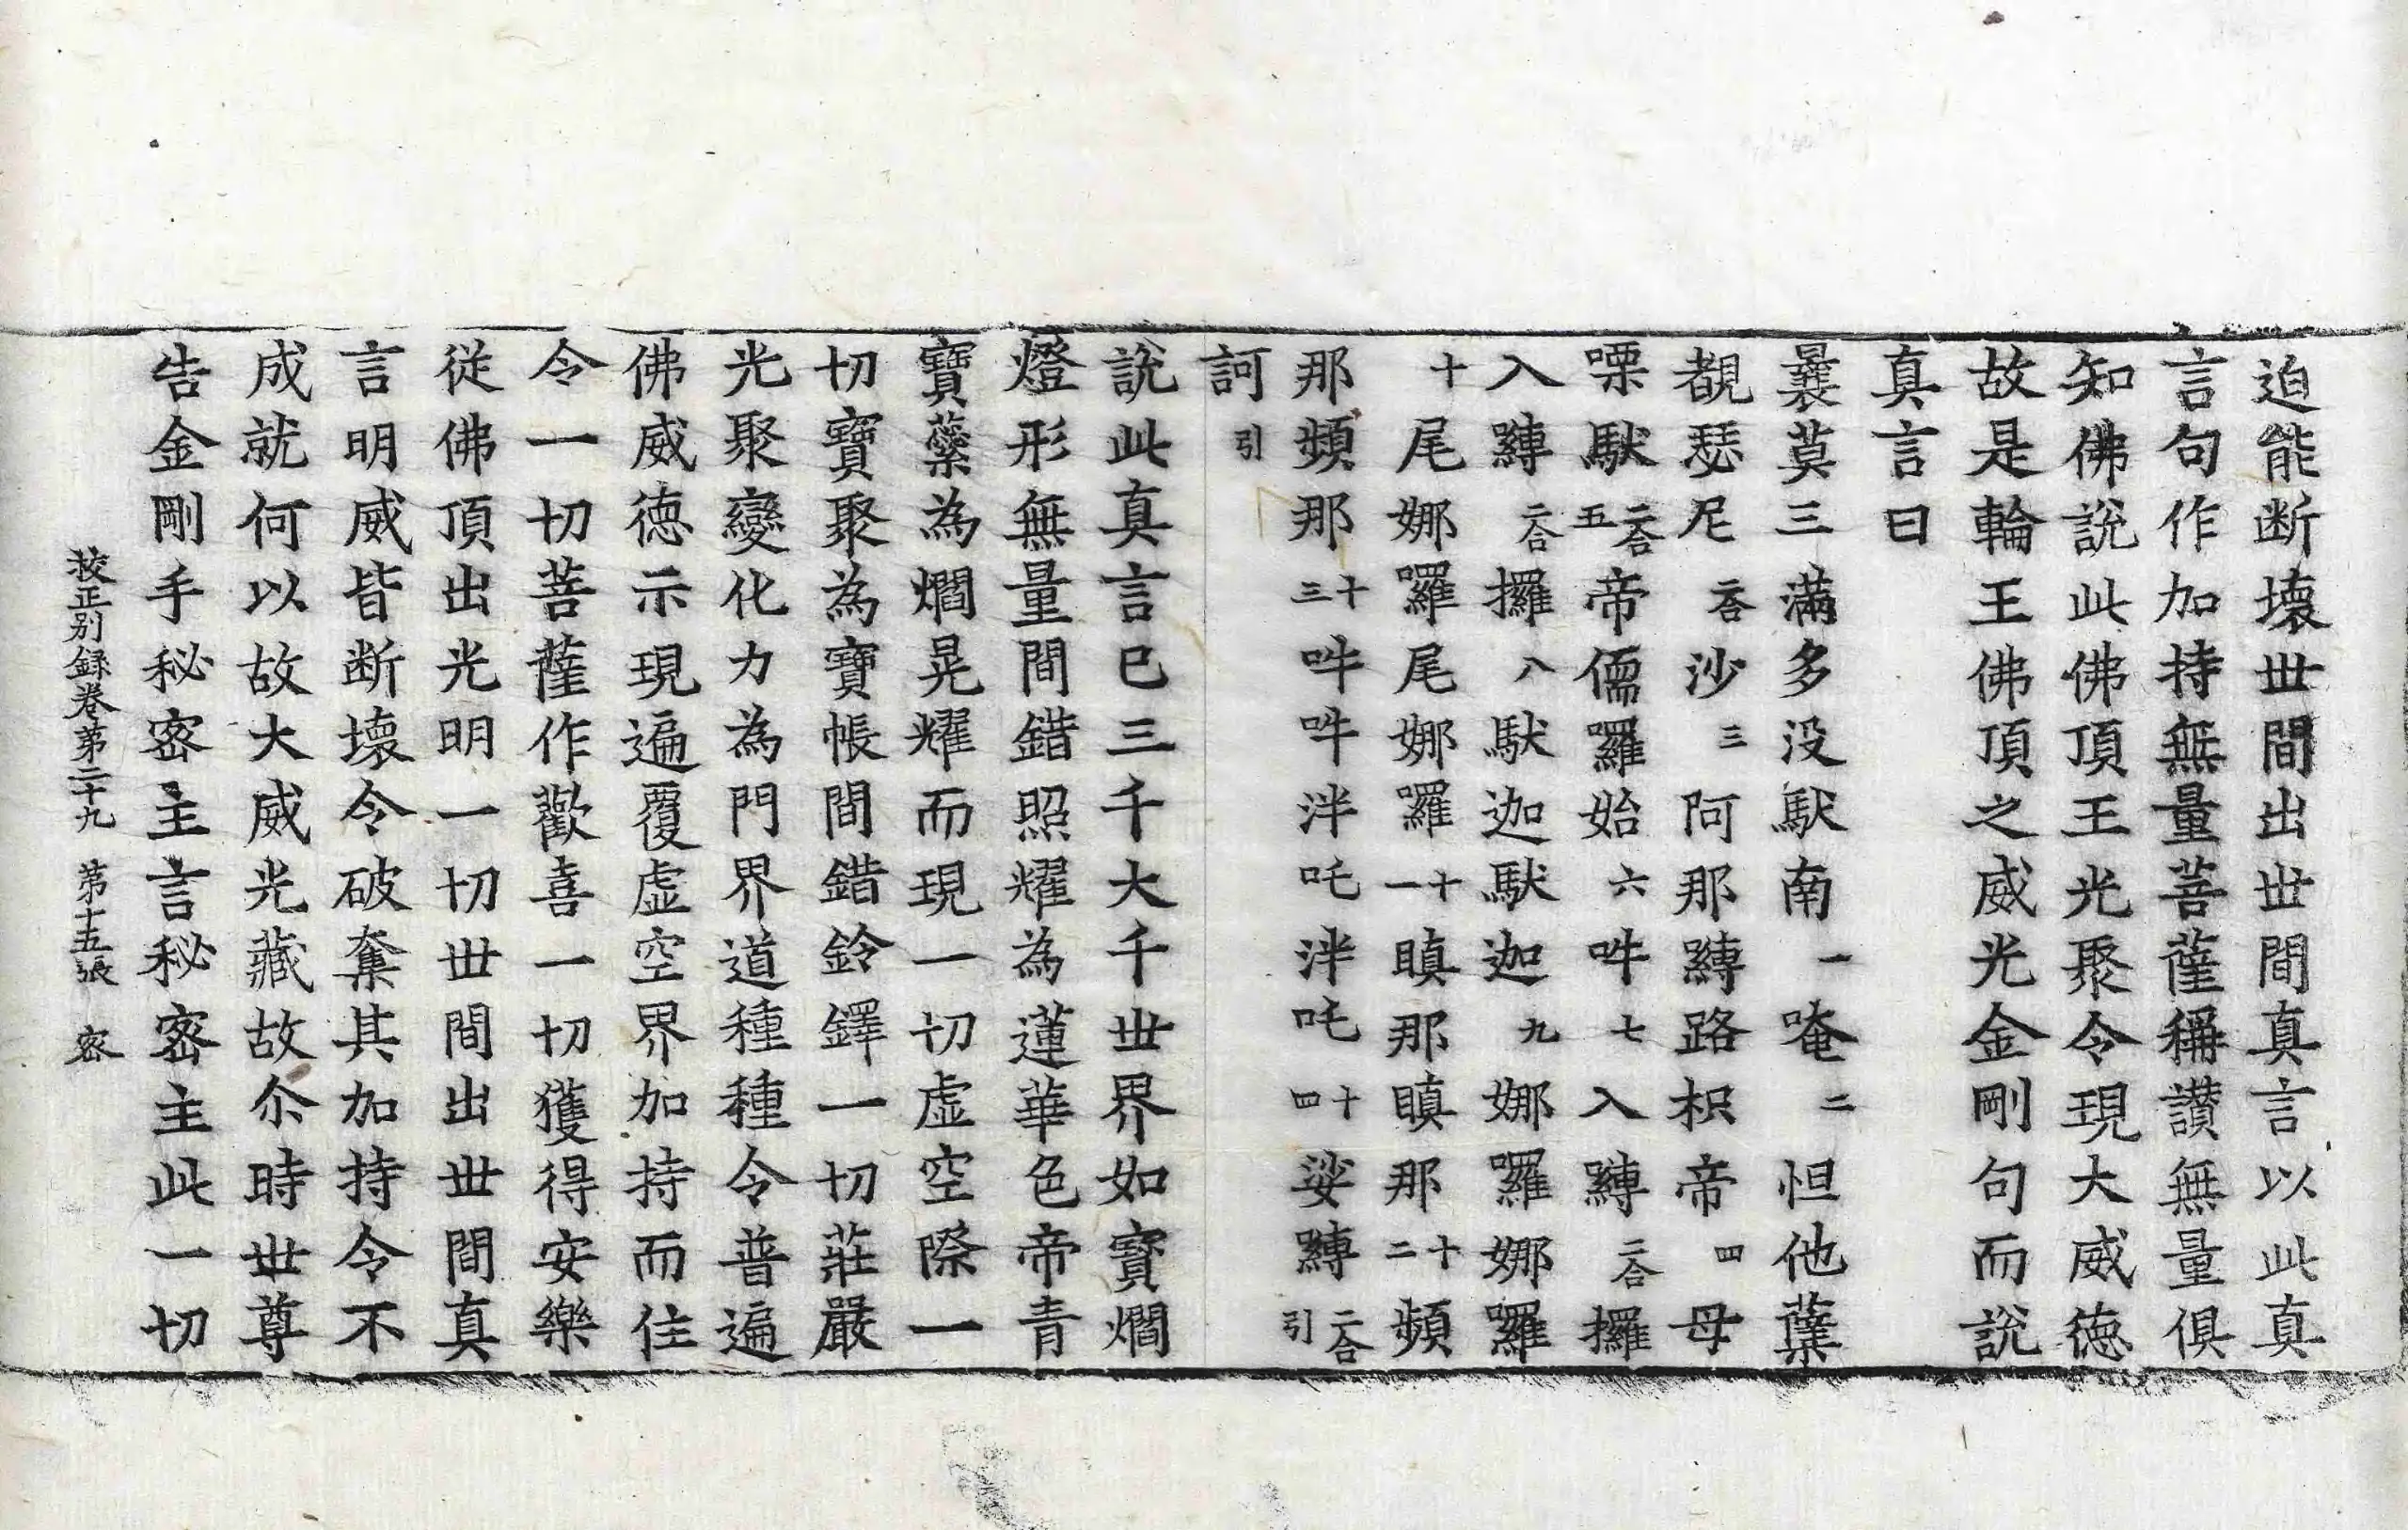 迫能断壞世間出世間真言以此真
言句作加持無量菩薩稱讃無量俱
知佛說此佛頂王光聚令現大威徳
故是輪王佛頂之威光金剛句而說
真言曰
曩莫三滿多没馱南一唵二怛他蘖
覩瑟尼二合沙三阿那縛路枳帝四母
㗚馱二合五帝儒囉始六吽七入縛二合攞
入縛二合攞八馱迦馱迦九娜囉娜囉
十尾娜囉尾娜囉十一瞋那瞋那十二頻
那頻那十三吽吽泮吒泮吒十四娑縛二合引
訶引
說此真言已三千大千世界如寳爓
燈形無量間錯照耀為蓮華色帝青
寶蘂為爓晃耀而現一切虛空際一
切寶聚為寶帳間錯鈴鐸一切莊嚴
光聚變化力為門界道種種令普遍
佛威徳示現遍覆虛空界加持而住
令一切菩薩作歡喜一切獲得安樂
從佛頂出光明一切世間出世間真
言明威皆断壞令破奪其加持令不
成就何以故大威光藏故尒時世尊
告金剛手秘密主言秘密主此一切
挍正别録卷第二十九　第十五張　密